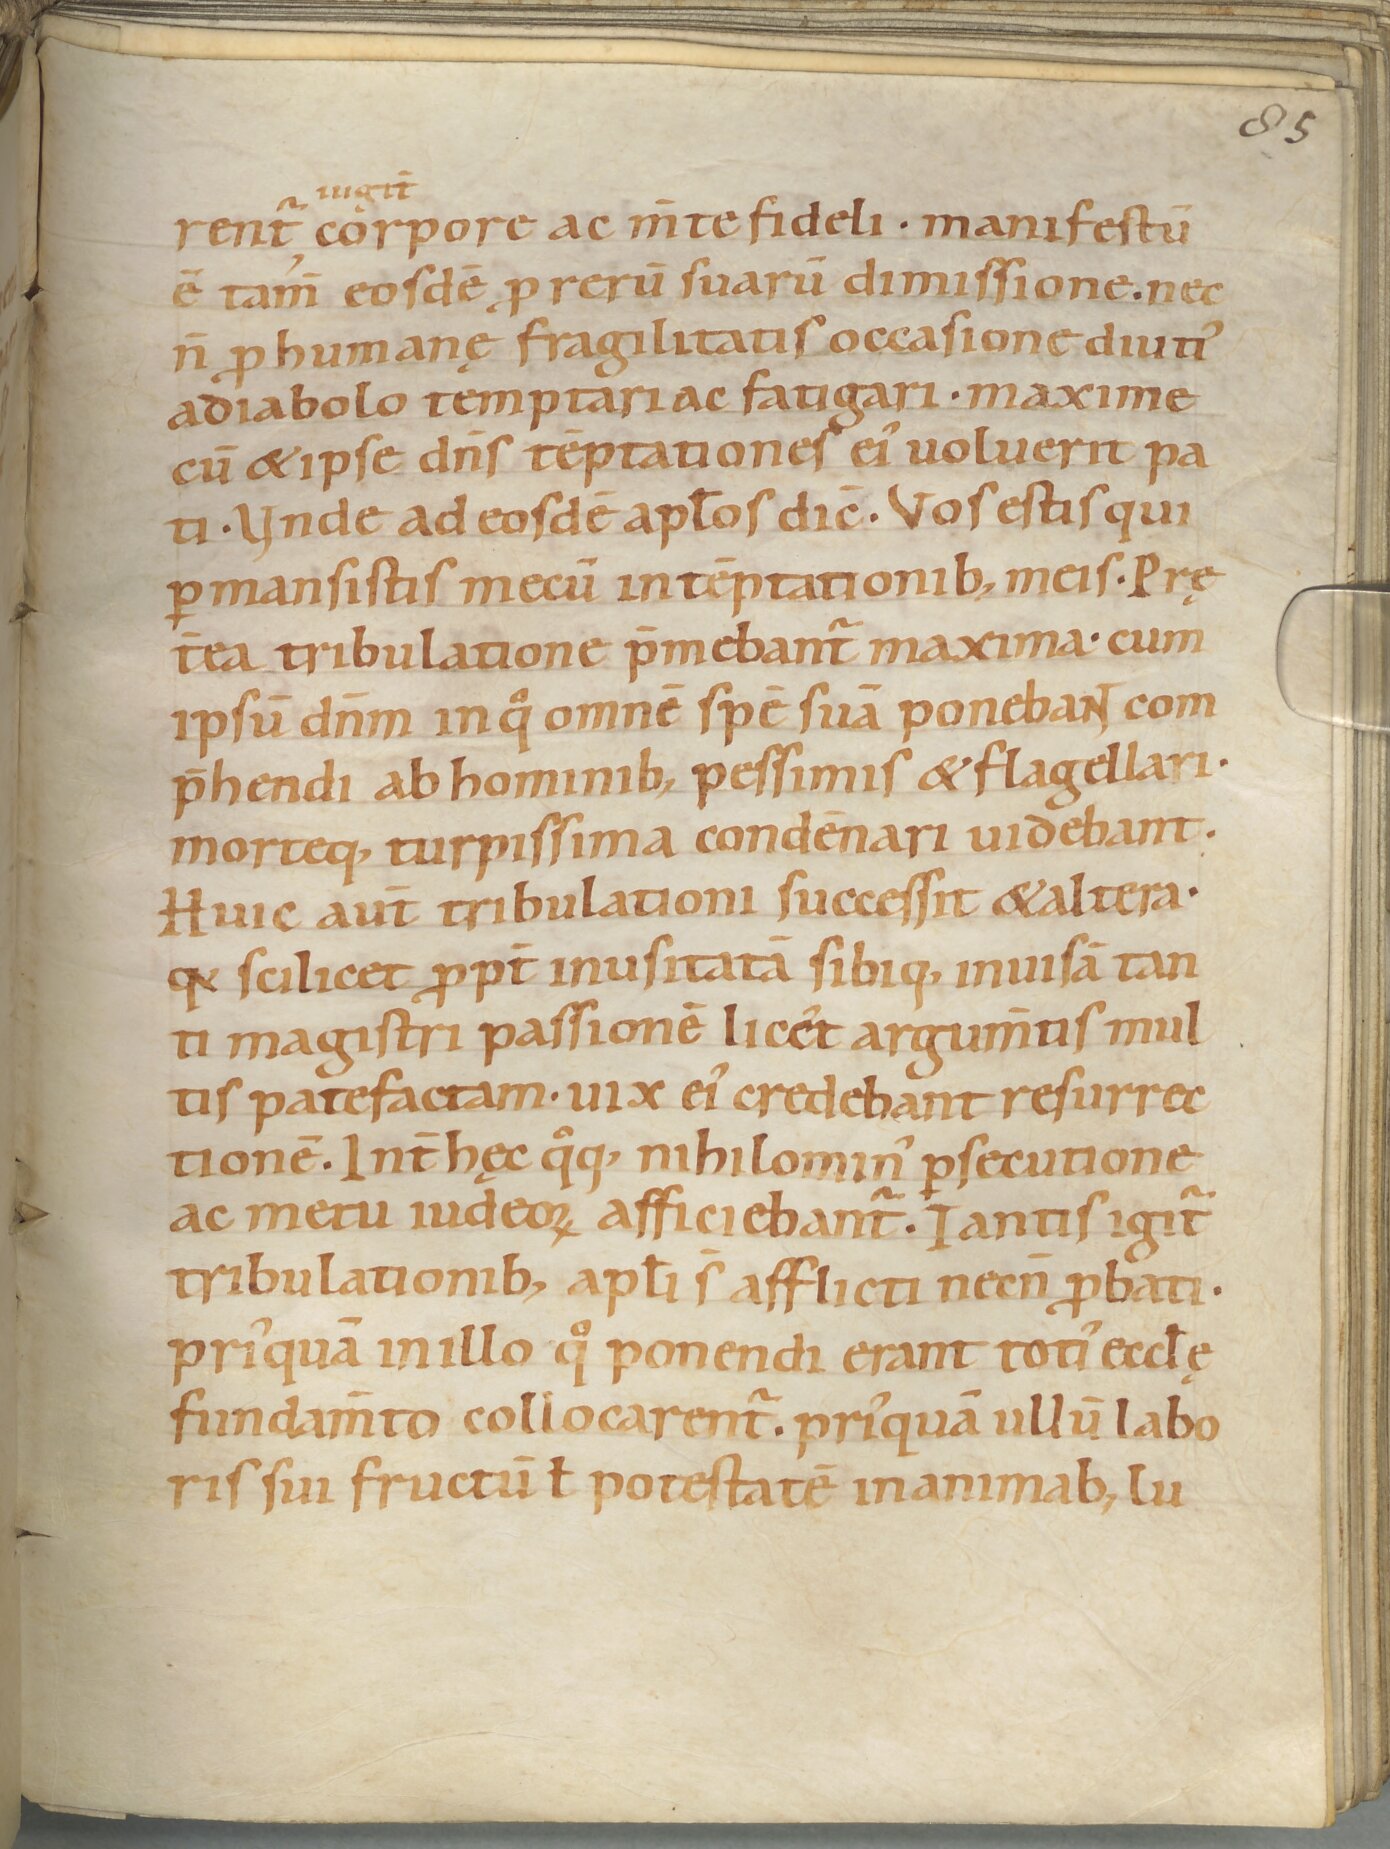 85
iugit̄
rent᷑ corpore ac m̄te fideli · manifestū
ē tam̄ eosdē ꝓ rerū suarū dimissione. nec
n̄ ꝓ humanę fragilitatis occasione diuti᾽
adiabolo temptari ac fatigari · maxime
cū & ipse dn̄s tēptationes ei᾽ uoluerit pa
ti · Vnde ad eosdē apl̄os dic̄ · Vos estis qui
ꝑmansistis mecū in tēptationib; meis · Prę
t̄ea tribulatione p̄mebant᷑ maxima · cum
ipsū dn̄m in qͦ omnē spē suā ponebant com
p̄hendi ab hominib; pessimis & flagellari ·
morteq; turpissima condēnari uidebant .
Huic aut̄ tribulationi successit & altera ·
qꝫ scilicet ꝓpt̄ inusitatā sibiq; inuisā tan
ti magistri passionē licet argum̄tis mul
tis patefactam · uix ei᾽ credebant resurrec
tionē. Int̄ hęc qͦq; nihilomin᾽ ꝑsecutione
ac metu iudeoꝝ afficiebant᷑ . Tantis igit᷑
tribulationib; apl̄i s̄ afflicti necn̄ ꝓbati ·
pri᾽quā in illo qͦ ponendi erant toti᾽ eccl̄ę
fundam̄to collocarent᷑ . pri᾽quā ullū labo
ris sui fructū ł potestatē in animab; lu